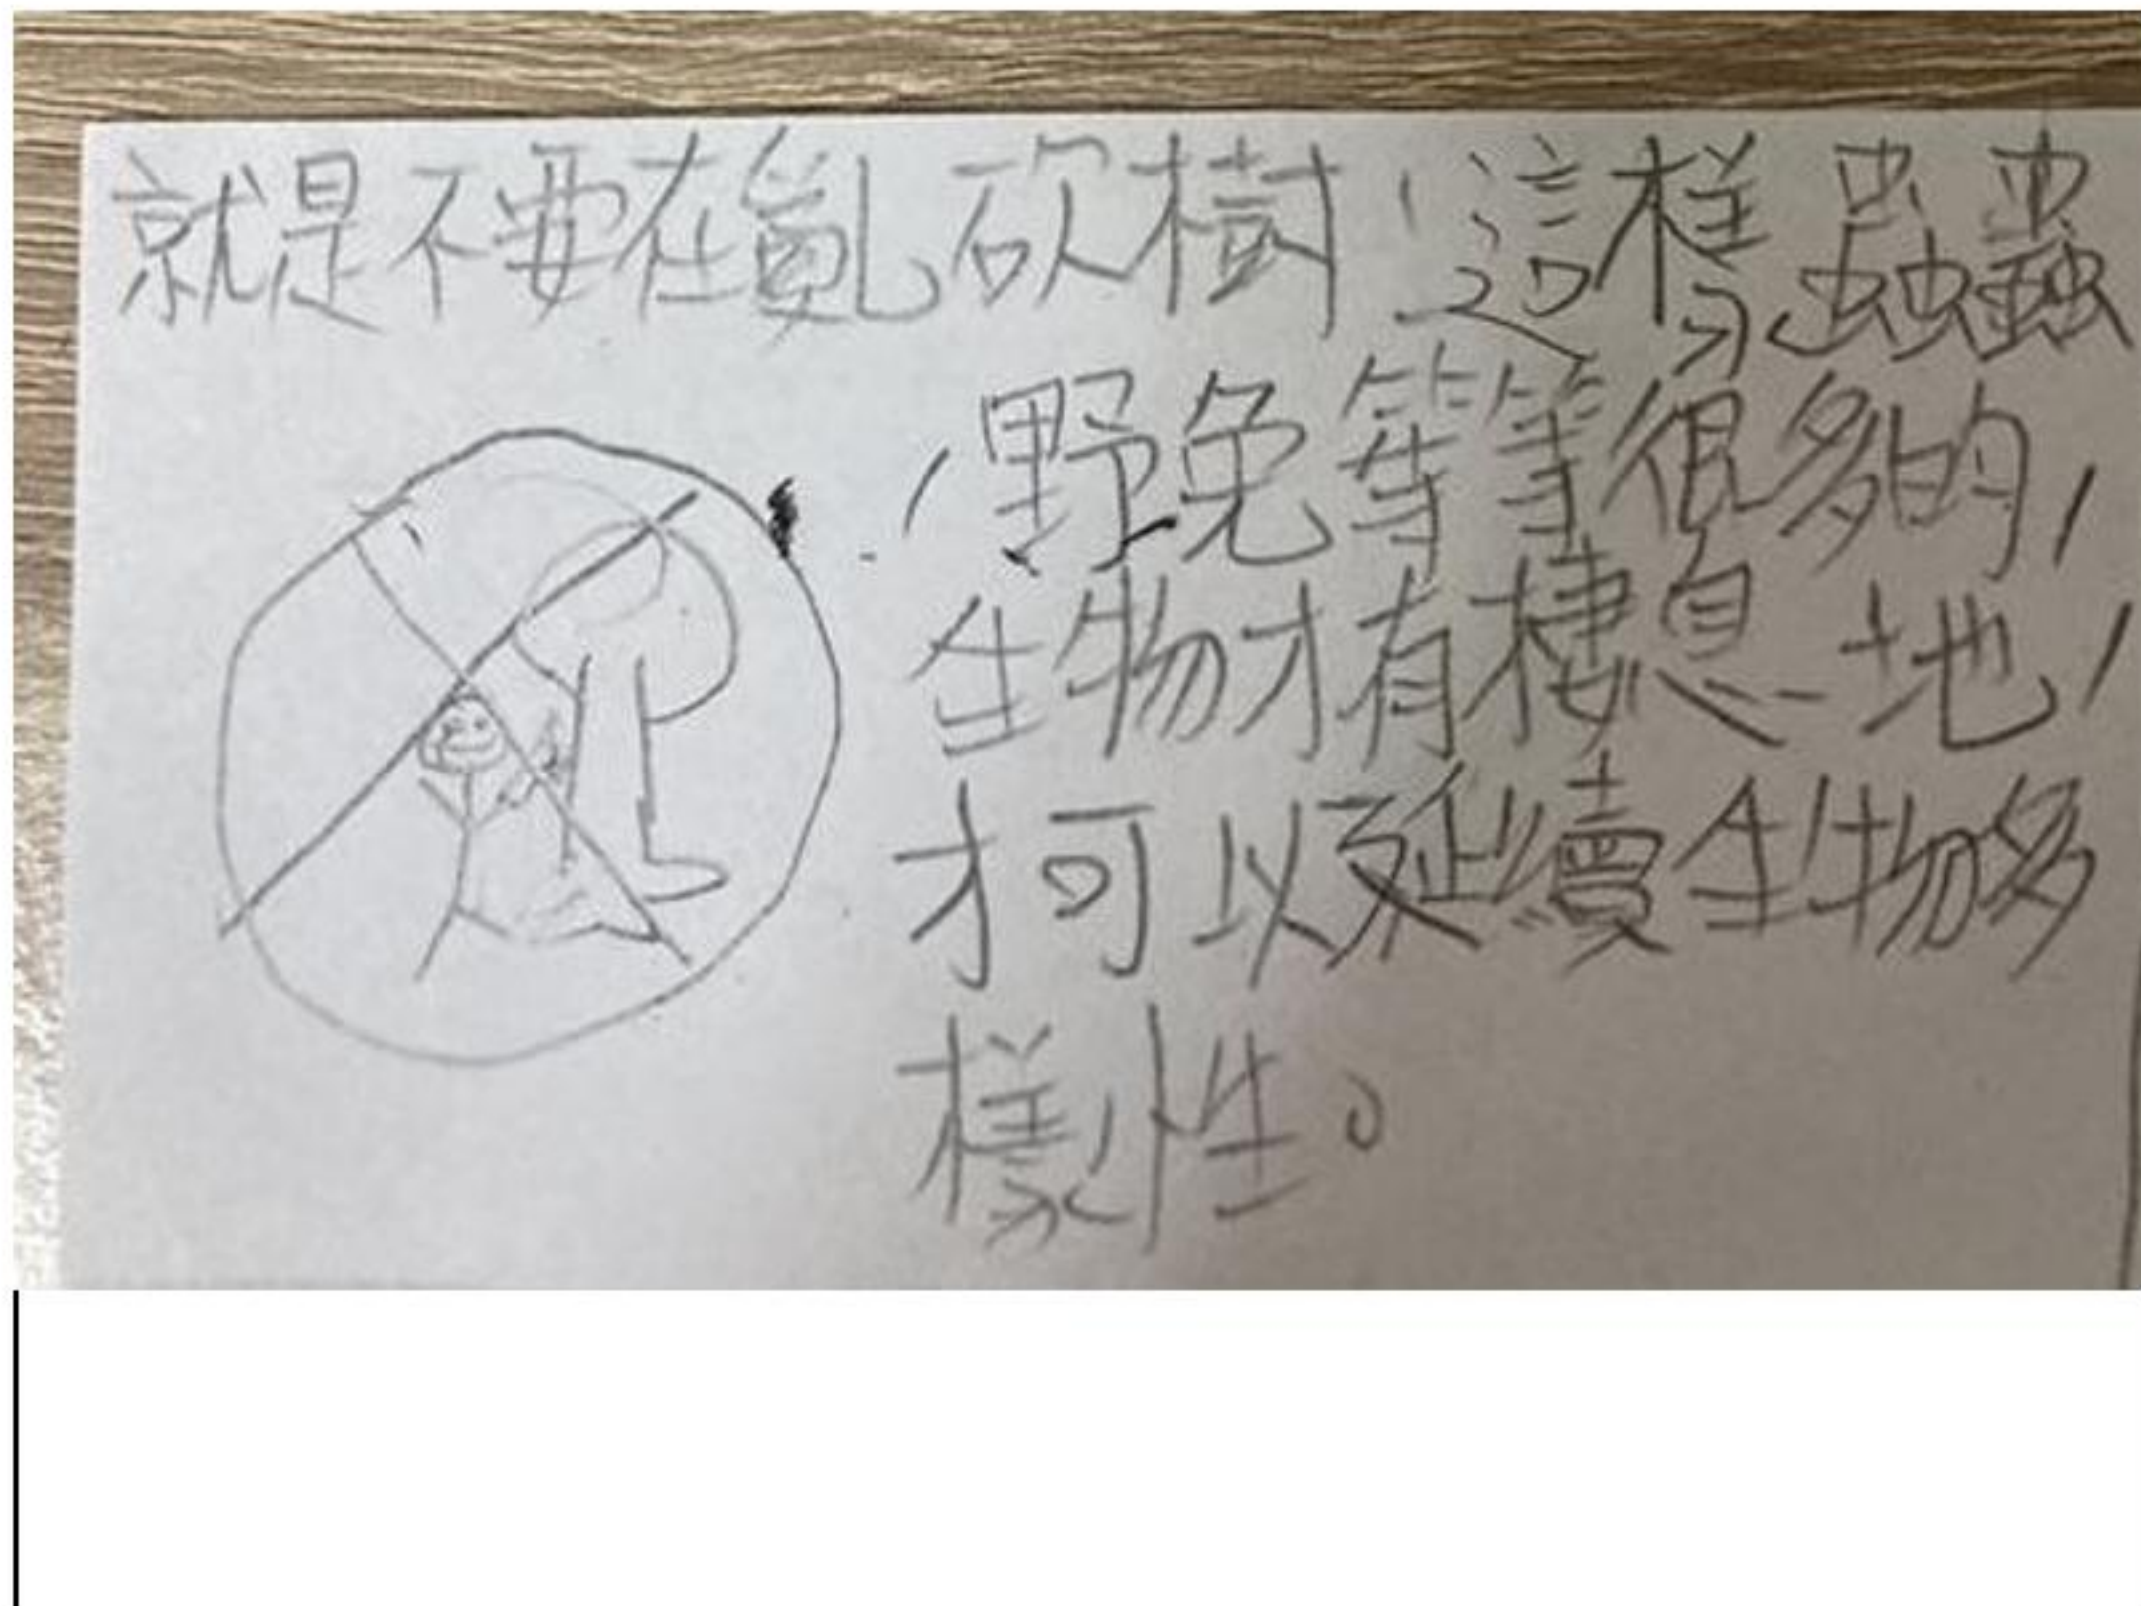 就是不要在亂砍樹，這樣蟲蟲
，野免等等很多的，
生物才有棲息地，
才可以延續生物多
樣性。